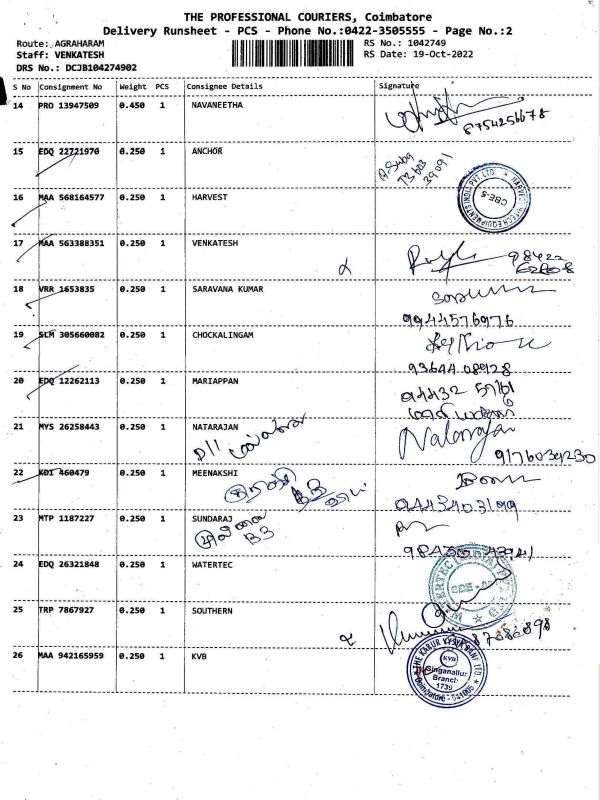 THE PROFESSIONAL COURIERS, Coimbatore
Delivery Runsheet - PCS - Phone No.:0422-3505555 - Page No.:2
Route: AGRAHARAM
Staff: VENKATESH
DRS No.: DCJB104274902
RS No.: 1042749
RS Date: 19-Oct-2022
S No Consignment No Weight PCS Consignee Details Signature
14 PRO 13947509 0.450 1 NAVANEETHA
8754256678
15 EDQ 22721970 0.250 1 ANCHOR
39091
16 MAA 568164577 0.250 1 HARVEST
CBE-5
17 MAA 563388351 0.250 1 VENKATESH
98422
62808
18 VRR 1653835 0.250 1 SARAVANA KUMAR
9944576976
19 SLM 305660082 0.250 1 CHOCKALINGAM
93644 08928
20 EDQ 12262113 0.250 1 MARIAPPAN
94432
21 MYS 26258443 0.250 1 NATARAJAN
Natarajan
9176039230
22 KDI 460479 0.250 1 MEENAKSHI
B3
9443403199
23 MTP 1187227 0.250 1 SUNDARAJ
B3
24 EDQ 26321848 0.250 1 WATERTEC
25 TRP 7867927 0.250 1 SOUTHERN
26 MAA 942165959 0.250 1 KVB
THE KARUR VYSYA BANK LTD
KVB
Singanallur
Branch
1736